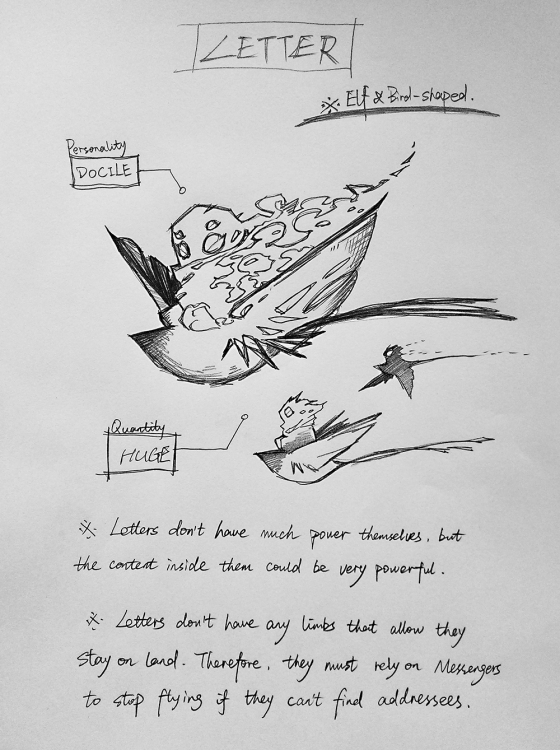 LETTER
※ Elf & Bird-shaped.
Personality
DOCILE
Quantity
HUGE
※ Letters don't have much power themselves, but
the content inside them could be very powerful.
※ Letters don't have any limbs that allow they
stay on land. Therefore, they must rely on Messengers
to stop flying if they can't find addressees.